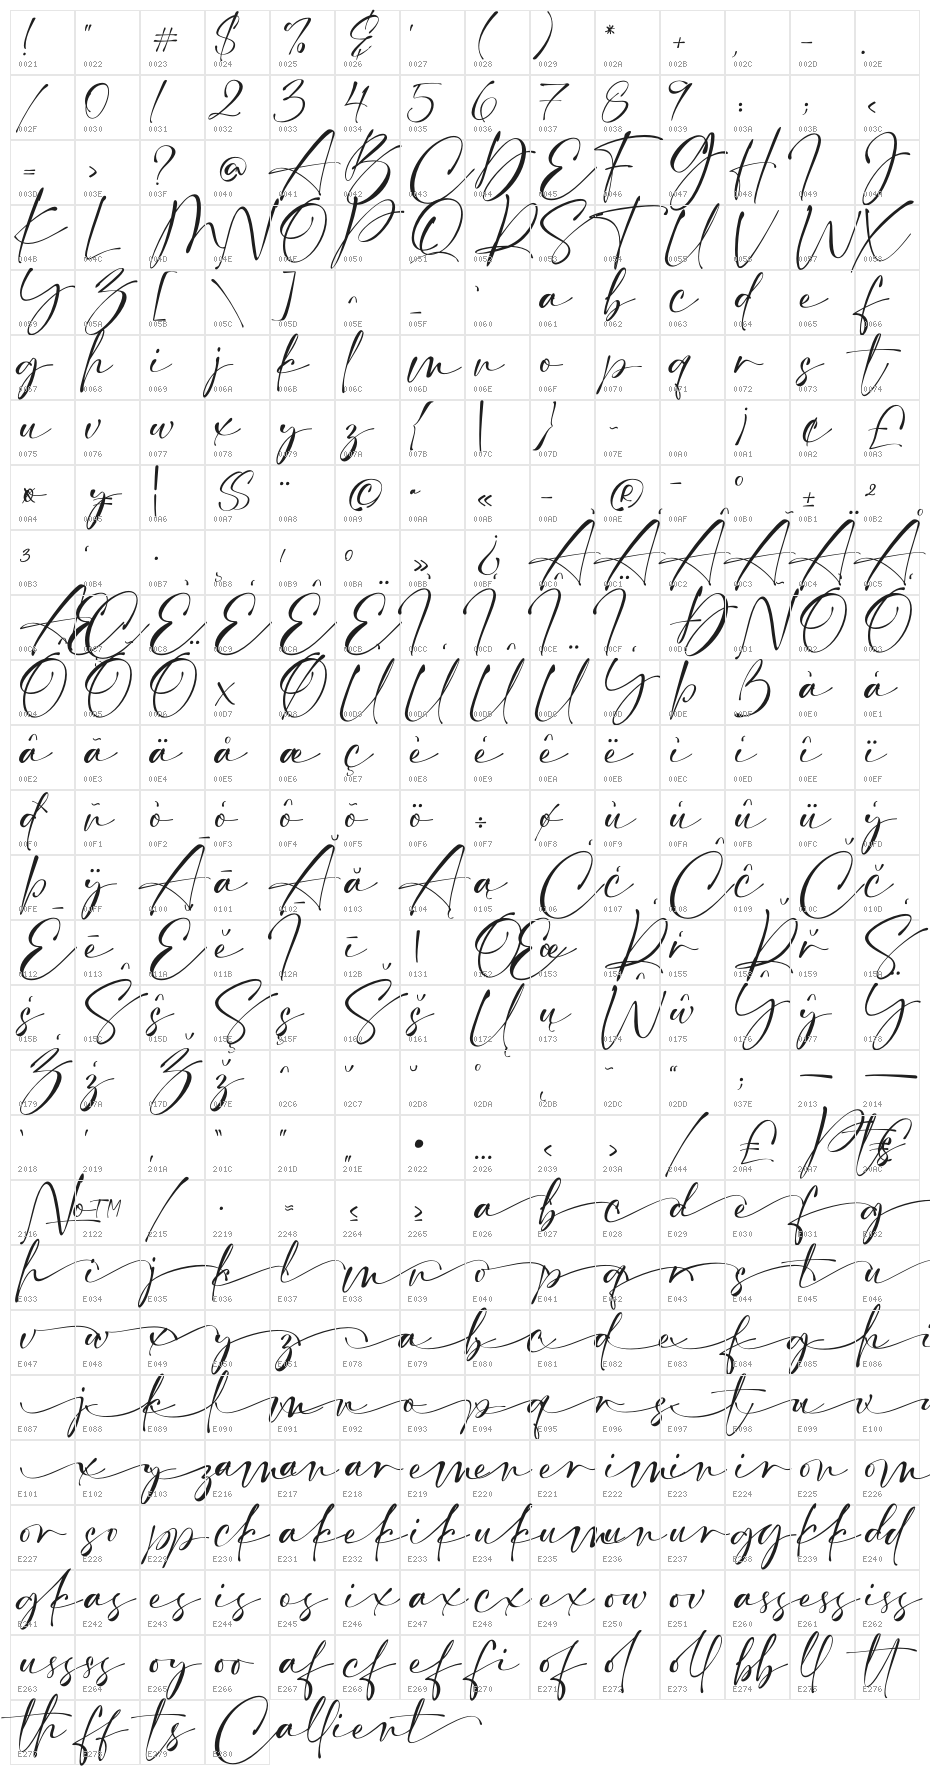 ! " # $ % & ' ( ) * + , - .
0021 0022 0023 0024 0025 0026 0027 0028 0029 002A 002B 002C 002D 002E
/ 0 1 2 3 4 5 6 7 8 9 : ; <
002F 0030 0031 0032 0033 0034 0035 0036 0037 0038 0039 003A 003B 003C
= > ? @ A B C D E F G H I J
003D 003E 003F 0040 0041 0042 0043 0044 0045 0046 0047 0048 0049 004A
K L M N O P Q R S T U V W X
004B 004C 004D 004E 004F 0050 0051 0052 0053 0054 0055 0056 0057 0058
Y Z [ \ ] ^ _ ` a b c d e f
0059 005A 005B 005C 005D 005E 005F 0060 0061 0062 0063 0064 0065 0066
g h i j k l m n o p q r s t
0067 0068 0069 006A 006B 006C 006D 006E 006F 0070 0071 0072 0073 0074
u v w x y z { | } ~ ¡ ¢ £
0075 0076 0077 0078 0079 007A 007B 007C 007D 007E 00A0 00A1 00A2 00A3
¤ ¥ ¦ § ¨ © ª « - ® ¯ ° ± ²
00A4 00A5 00A6 00A7 00A8 00A9 00AA 00AB 00AD 00AE 00AF 00B0 00B1 00B2
³ ´ · ¸ ¹ º » ¿ À Á Â Ã Ä Å
00B3 00B4 00B7 00B8 00B9 00BA 00BB 00BF 00C0 00C1 00C2 00C3 00C4 00C5
Æ Ç È É Ê Ë Ì Í Î Ï Ð Ñ Ò Ó
00C6 00C7 00C8 00C9 00CA 00CB 00CC 00CD 00CE 00CF 00D0 00D1 00D2 00D3
Ô Õ Ö × Ø Ù Ú Û Ü Ý Þ ß à á
00D4 00D5 00D6 00D7 00D8 00D9 00DA 00DB 00DC 00DD 00DE 00DF 00E0 00E1
â ã ä å æ ç è é ê ë ì í î ï
00E2 00E3 00E4 00E5 00E6 00E7 00E8 00E9 00EA 00EB 00EC 00ED 00EE 00EF
ð ñ ò ó ô õ ö ÷ ø ù ú û ü ý
00F0 00F1 00F2 00F3 00F4 00F5 00F6 00F7 00F8 00F9 00FA 00FB 00FC 00FD
þ ÿ Ā ā Ă ă Ą ą Ć ć Ĉ ĉ Č č
00FE 00FF 0100 0101 0102 0103 0104 0105 0106 0107 0108 0109 010C 010D
Ē ē Ě ě Ī ī ı Œ œ Ŕ ŕ Ř ř Ś
0112 0113 011A 011B 012A 012B 0131 0152 0153 0154 0155 0158 0159 015A
ś Ŝ ŝ Ş ş Š š Ų ų Ŵ ŵ Ŷ ŷ Ÿ
015B 015C 015D 015E 015F 0160 0161 0172 0173 0174 0175 0176 0177 0178
Ź ź Ž ž ˆ ˇ ˘ ˚ ˛ ˜ ˝ ; – —
0179 017A 017D 017E 02C6 02C7 02D8 02DA 02DB 02DC 02DD 037E 2013 2014
‘ ’ ‚ “ ” „ • … ‹ › ⁄ ₤ ₧ €
2018 2019 201A 201C 201D 201E 2022 2026 2039 203A 2044 20A4 20A7 20AC
№ ™ ∕ ∙ ≈ ≤ ≥ a b c d e f g
2116 2122 2215 2219 2248 2264 2265 E026 E027 E028 E029 E030 E031 E032
h i j k l m n o p q r s t u
E033 E034 E035 E036 E037 E038 E039 E040 E041 E042 E043 E044 E045 E046
v w x y z a b c d e f g h i
E047 E048 E049 E050 E051 E078 E079 E080 E081 E082 E083 E084 E085 E086
j k l m n o p q r s t u v
E087 E088 E089 E090 E091 E092 E093 E094 E095 E096 E097 E098 E099 E100
x y z am an ar em en er im in ir on om
E101 E102 E103 E216 E217 E218 E219 E220 E221 E222 E223 E224 E225 E226
or so pp ck ak ek ik uk um un ur gg kk dd
E227 E228 E229 E230 E231 E232 E233 E234 E235 E236 E237 E238 E239 E240
gk as es is os ix ax cx ex ow ov ass ess iss
E241 E242 E243 E244 E245 E246 E247 E248 E249 E250 E251 E260 E261 E262
uss ss oy oo af cf ef fi of ol oll bb ll tt
E263 E264 E265 E266 E267 E268 E269 E270 E271 E272 E273 E274 E275 E276
th ff ts Callient
E277 E278 E279 E280